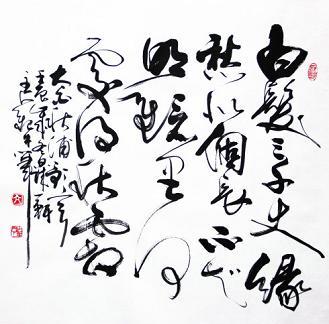 白髮三千丈緣
愁似個長不知
明鏡里何
處得秋霜
太白秋浦歌一首